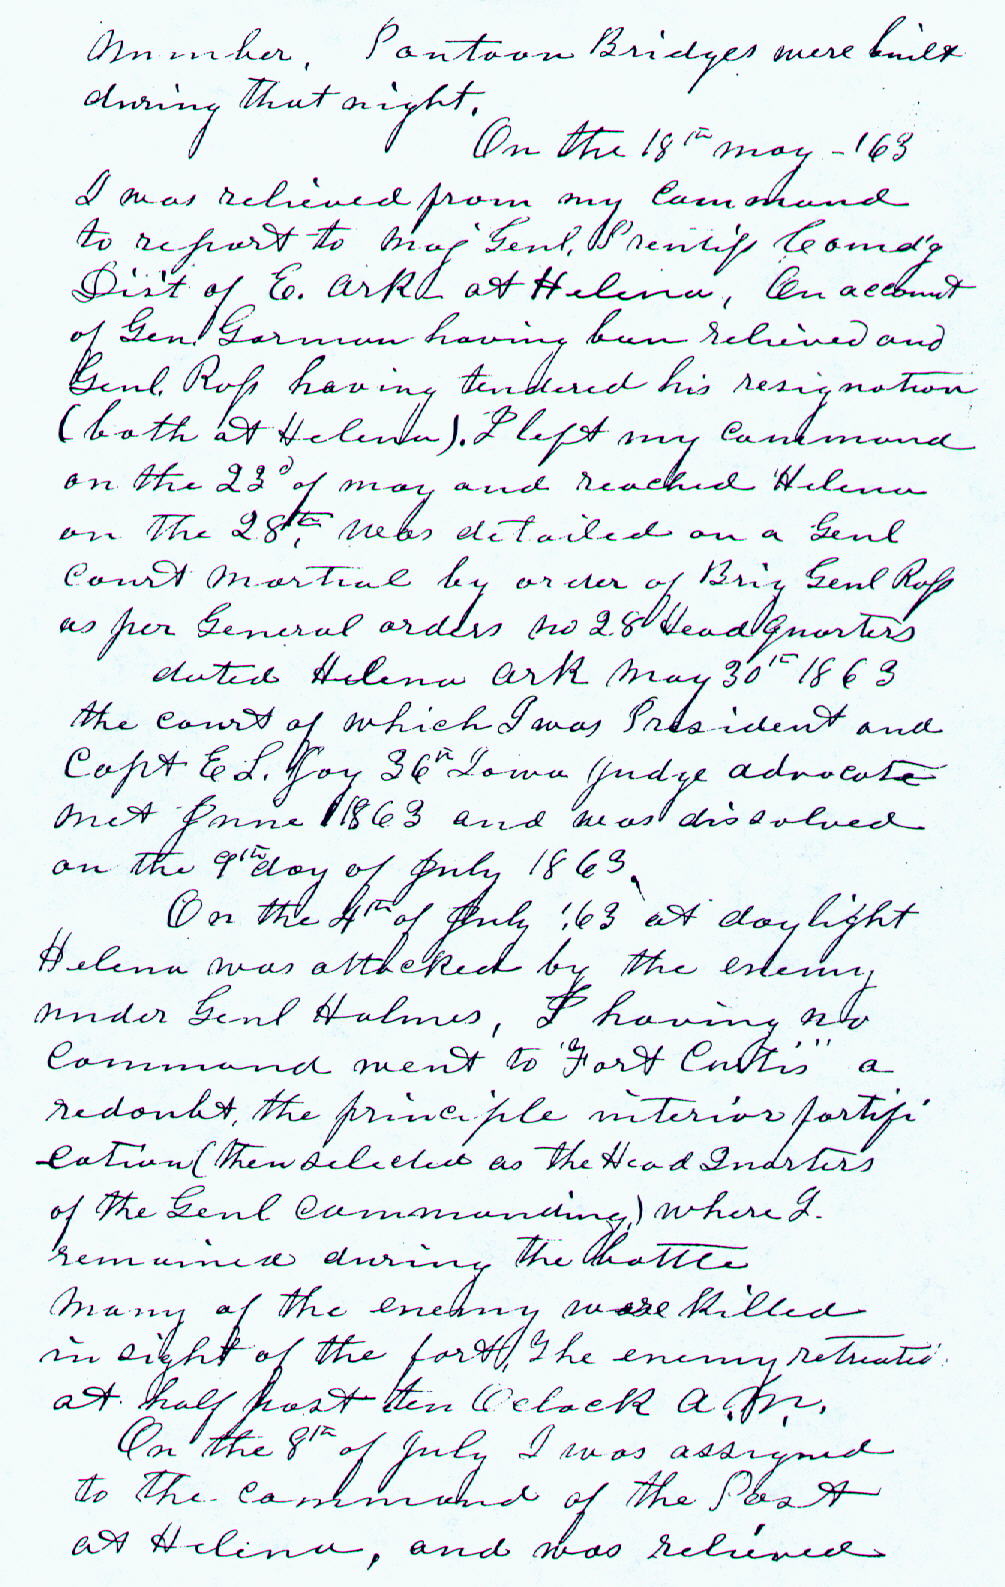 Number, Pontoon Bridges were built
during that night.
On the 18th may - '63
I was relieved from my Command
to report to Maj Genl. Prentiss Comd'g
Dist of E. Ark at Helena, On account
of Gen. Gorman having been relieved and
Genl. Ross having tendered his resignation
(both at Helena). I left my Command
on the 23d of may and reached Helena
on the 28th, was detailed on a Genl
Court Martial by order of Brig Genl Ross
as per General orders no 28 Head Quarters
dated Helena Ark May 30th 1863
the court of which I was President and
Capt E L. Joy 36th Iowa Judge advocate
met June 1 1863 and was dissolved
on the 9th day of July 1863.
On the 4th of July '63 at daylight
Helena was attacked by the enemy
under Genl Holmes, I having no
Command went to "Fort Curtis" a
redoubt, the principle interior fortifi
-cation (then selected as the Head Quarters
of the Genl Commanding) where I
remained during the battle
Many of the enemy were killed
in sight of the fort, The enemy retreated
at half past ten Oclock A.M.
On the 8th of July I was assigned
to the Command of the Post
at Helena, and was relieved